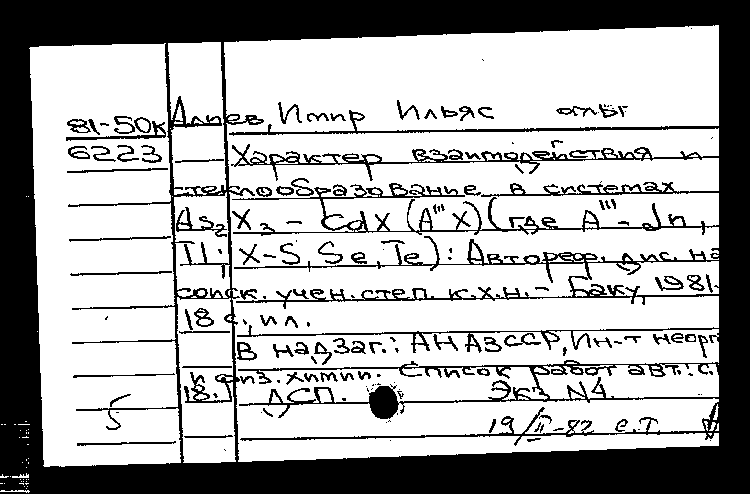 81-50к Алиев, Имир Ильяс оглы
6223 Характер взаимодействия и
стеклообразование в системах
As₂X₃ – CdX (AᴵᴵᴵX) (где Aᴵᴵᴵ – Jn,
Tl; X-S, Se, Te): Автореф. дис. на
соиск. учен. степ. к.х.н. – Баку, 1981.
18 с., ил.
В надзаг.: АН АзССР, Ин-т неорг
и физ. химии. Список работ авт.: с.
18. ДСП. Экз N4.
5
19/II-82 е.т.